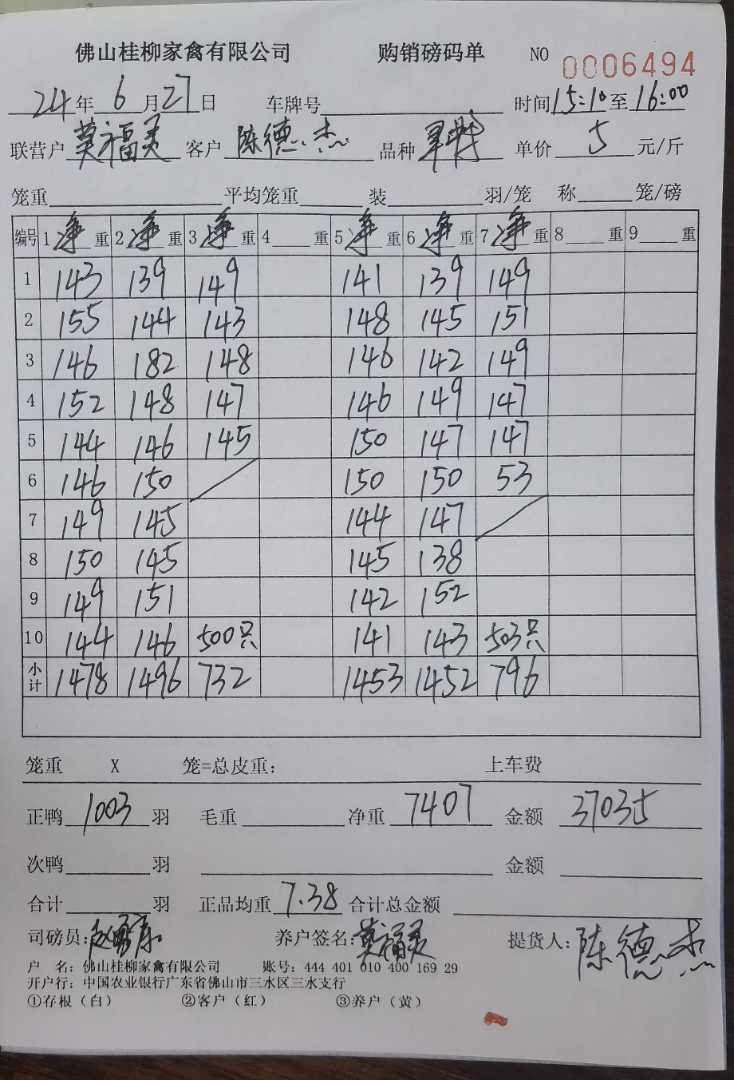 佛山桂柳家禽有限公司 购销磅码单 NO 0006494
24年6月27日 车牌号 时间15:10至16:00
联营户 莫福灵 客户 陈德杰 品种 单价 5 元/斤
笼重 平均笼重 装 羽/笼 称 笼/磅
编号 1净重 2净重 3净重 4 重 5净重 6净重 7净重 8 重 9 重
1 143 139 149 141 139 149
2 155 144 143 148 145 151
3 146 182 148 146 142 149
4 152 148 147 146 149 147
5 144 146 145 150 147 147
6 146 150 150 150 53
7 149 145 144 147
8 150 145 145 138
9 149 151 142 152
10 144 146 500只 141 143 503只
小计 1478 1496 732 1453 1452 796
笼重 X 笼=总皮重: 上车费
正鸭 1003 羽 毛重 净重 7407 金额 37035
次鸭 羽 金额
合计 羽 正品均重 7.38 合计总金额
司磅员: 养户签名: 莫福灵 提货人: 陈德杰
户 名: 佛山桂柳家禽有限公司 账号: 444 401 010 400 169 29
开户行: 中国农业银行广东省佛山市三水区三水支行
①存根(白) ②客户(红) ③养户(黄)